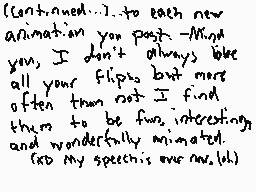 (Continued...)...to each new
animation you post. -Mind
you, I don't always love
all your flips, but more
often than not I find
them to be fun, interesting,
and wonderfully animated.
(XD My speech is over now. lol.)